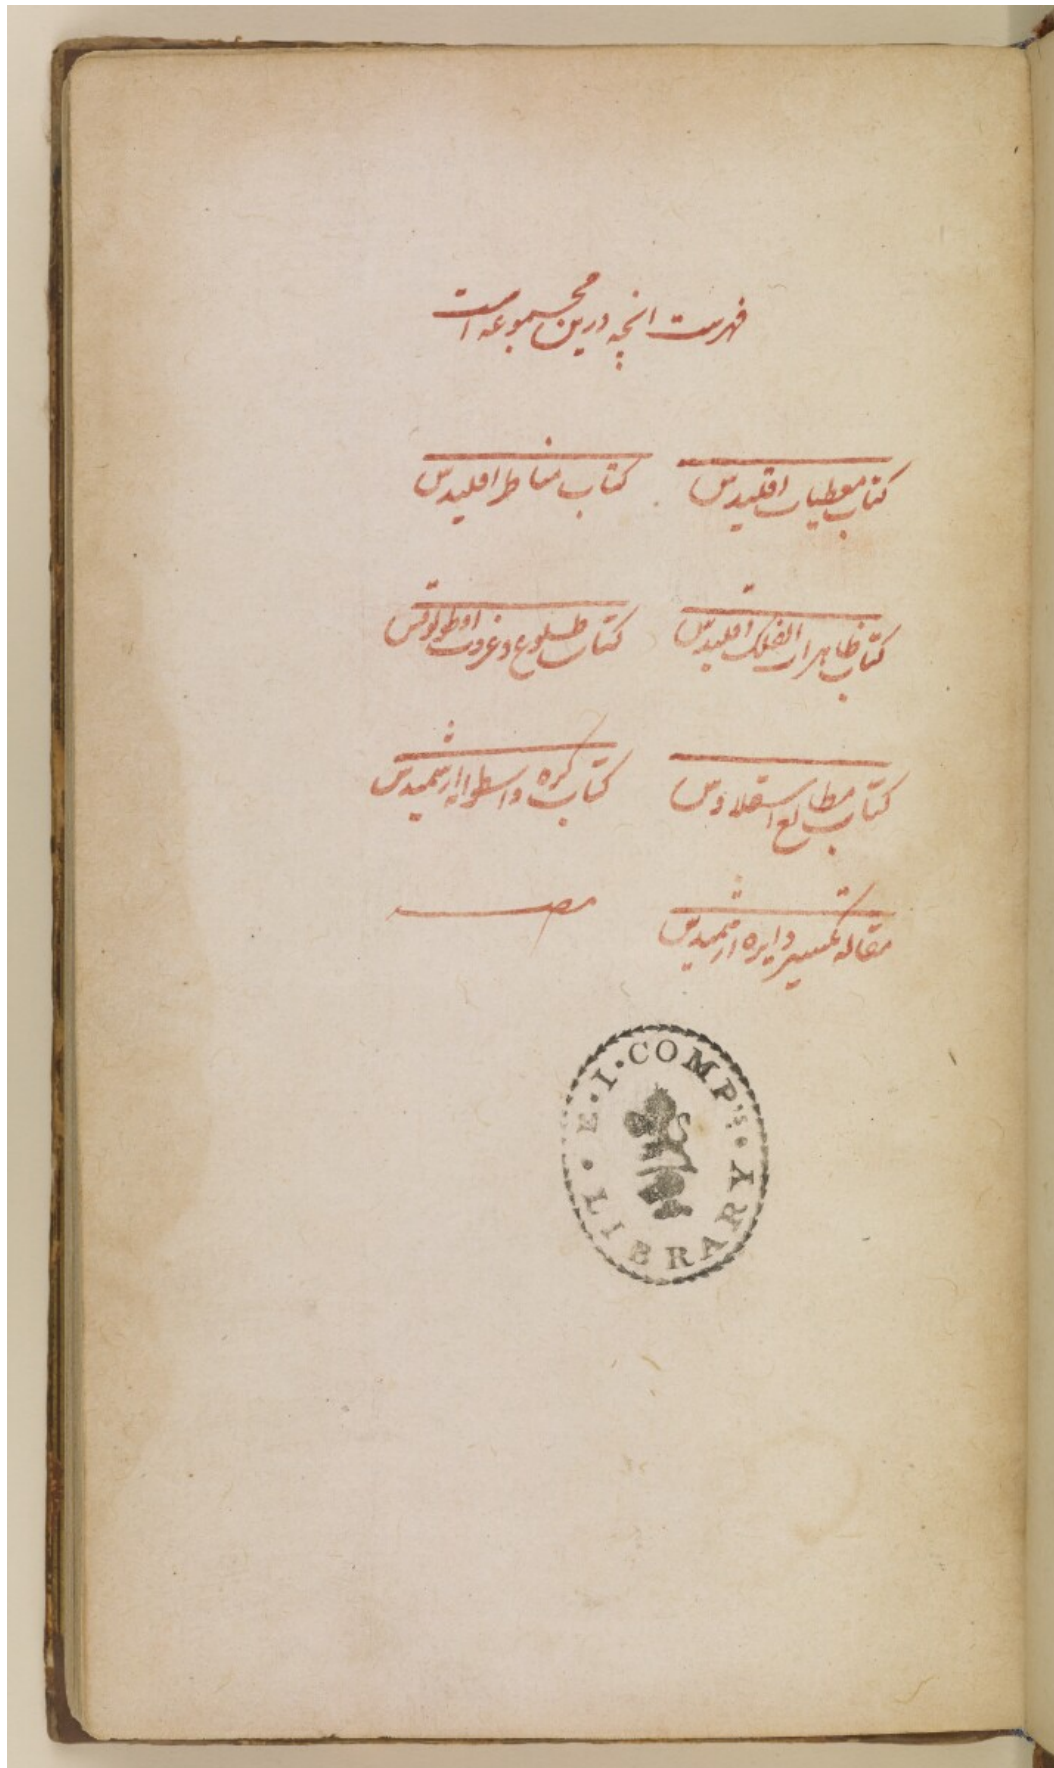 فهرست انچه درین مجموعه است
کتاب معطیات اقلیدس
کتاب مناظر اقلیدس
کتاب ظاهرات الفلک اقلیدس
کتاب طلوع و غروب اوطولوقس
کتاب مطالع اسقلاوس
کتاب کره و اسطوانه ارشمیدس
مقاله تکسیر دایره ارشمیدس
E·I·COMP'S·
LIBRARY